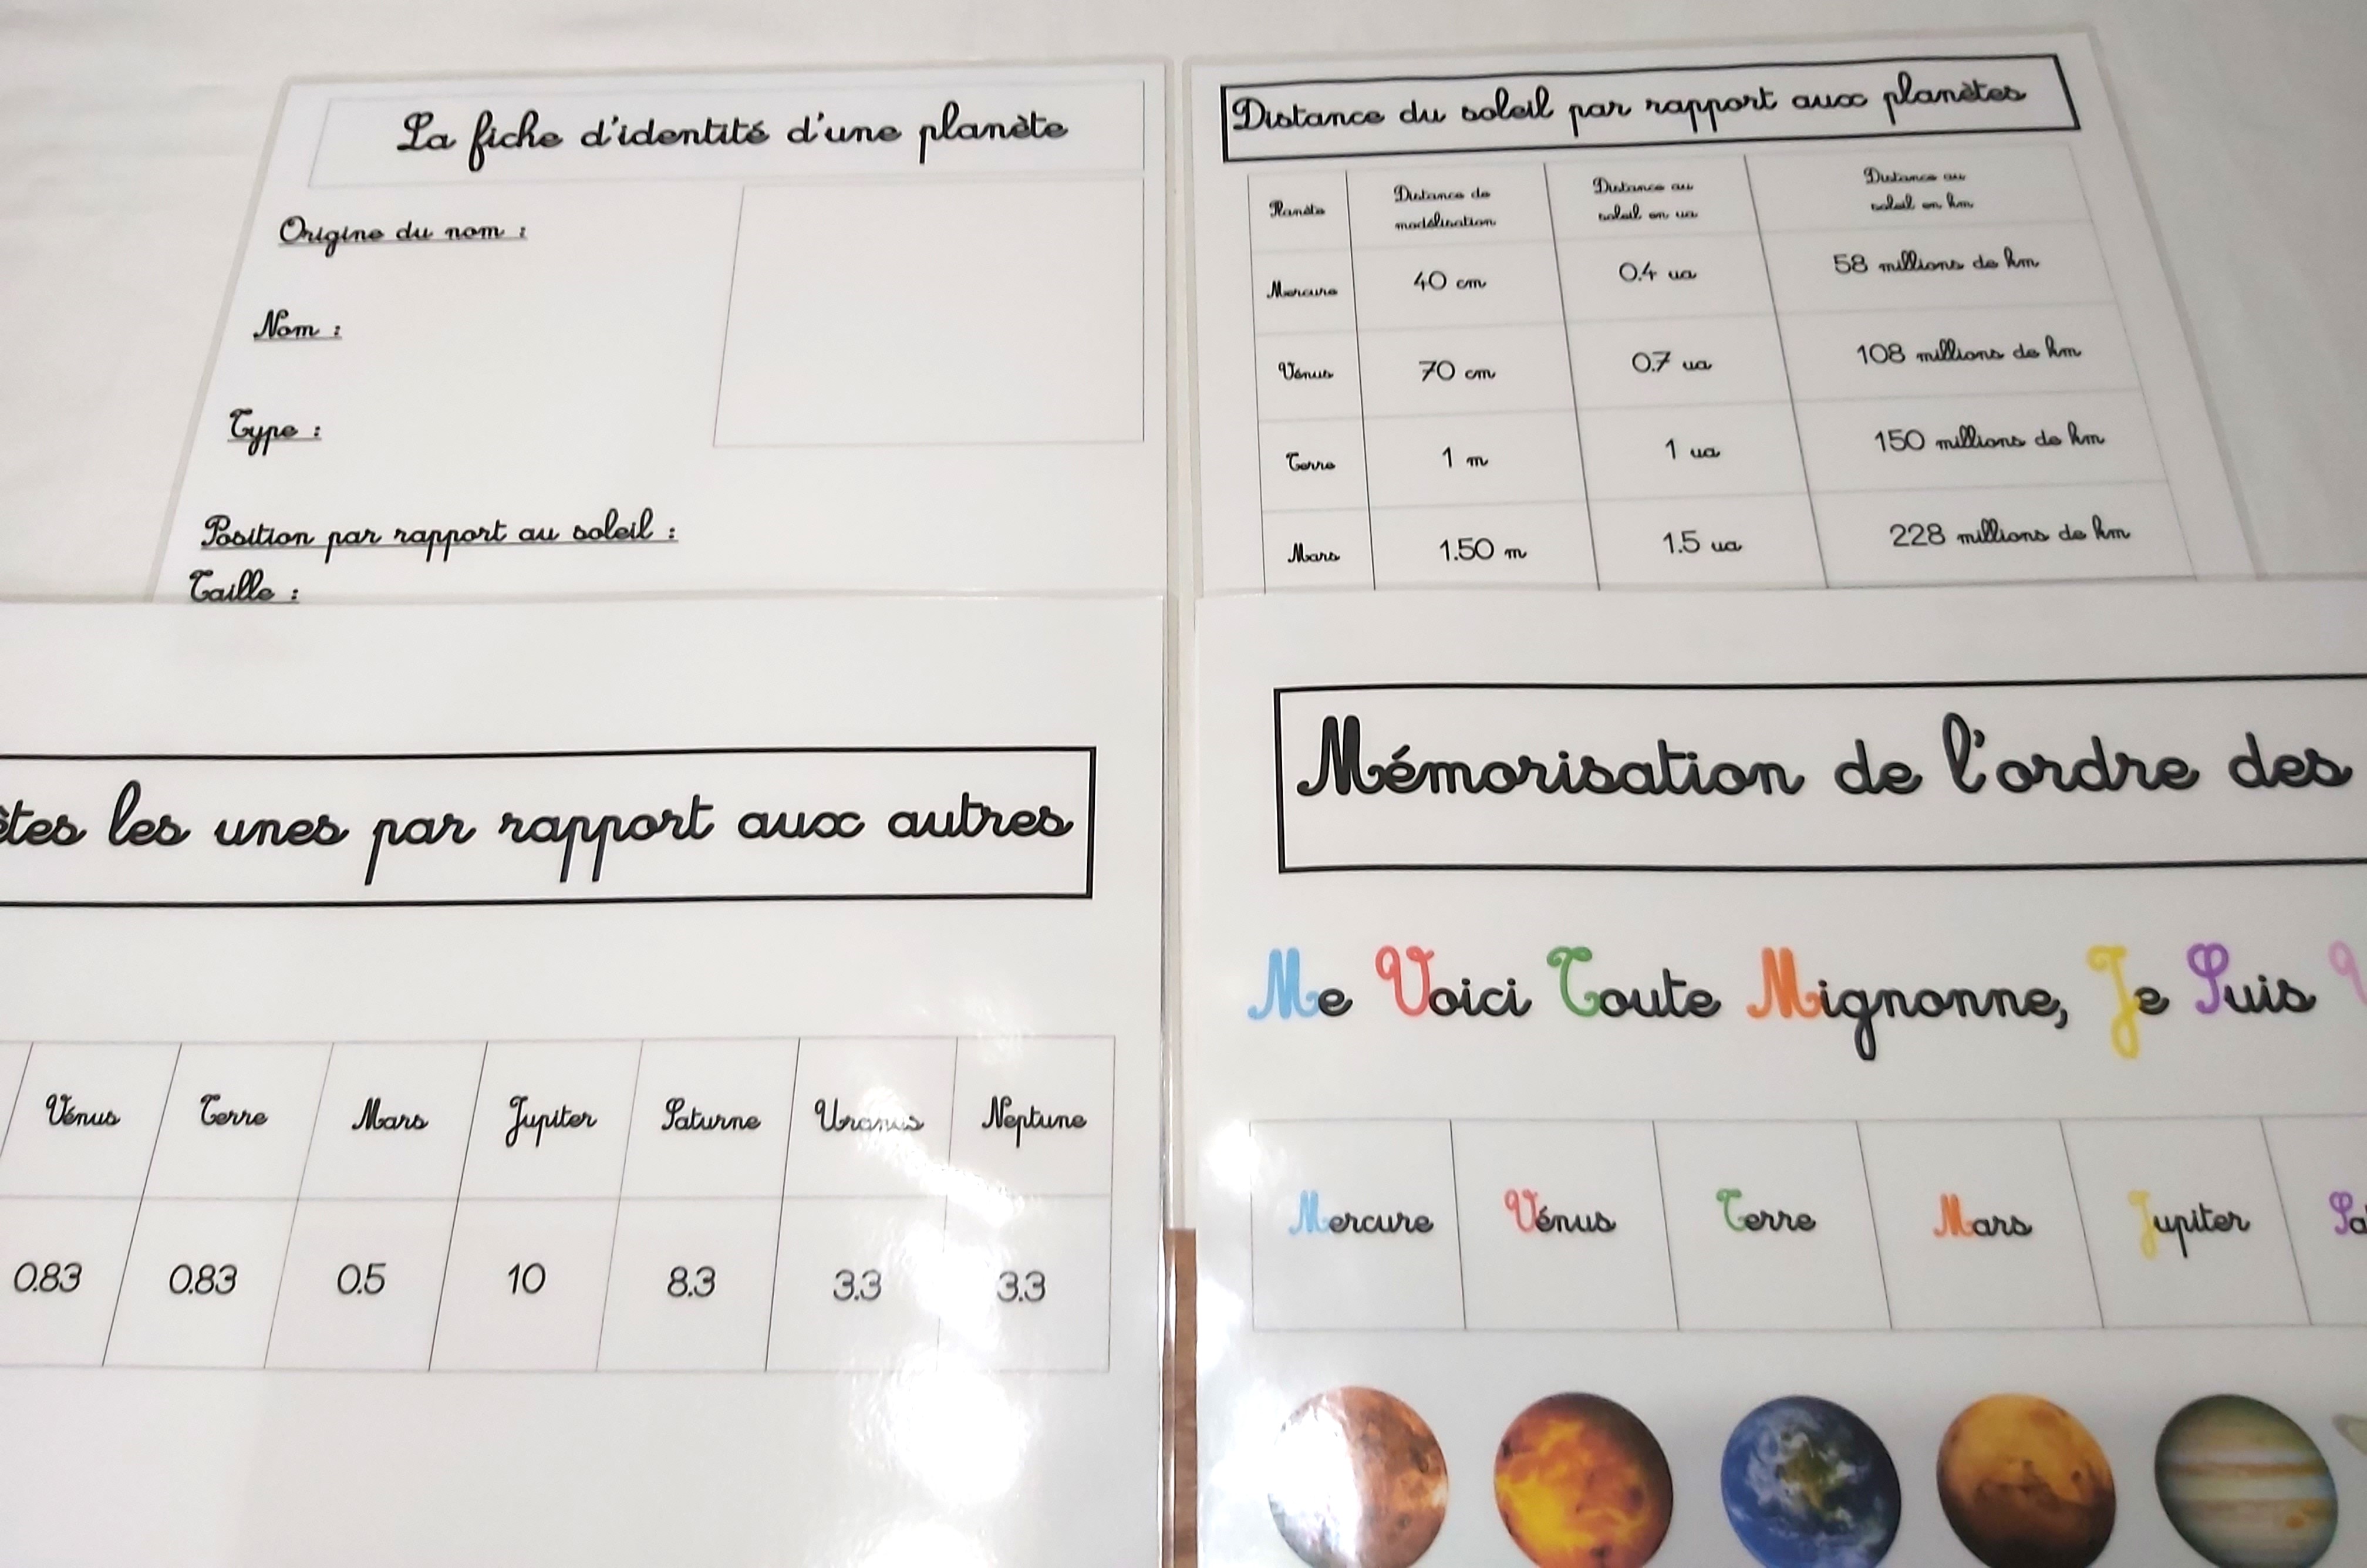 La fiche d'identité d'une planète
Origine du nom :
Nom :
Type :
Position par rapport au soleil :
Taille :
Distance du soleil par rapport aux planètes
Planète Distance de modélisation Distance au soleil en ua Distance au soleil en km
Mercure 40 cm 0.4 ua 58 millions de km
Vénus 70 cm 0.7 ua 108 millions de km
Terre 1 m 1 ua 150 millions de km
Mars 1.50 m 1.5 ua 228 millions de km
les unes par rapport aux autres
Vénus Terre Mars Jupiter Saturne Uranus Neptune
0.83 0.83 0.5 10 8.3 3.3 3.3
Mémorisation de l'ordre des
Me Voici Toute Mignonne, Je Suis
Mercure Vénus Terre Mars Jupiter